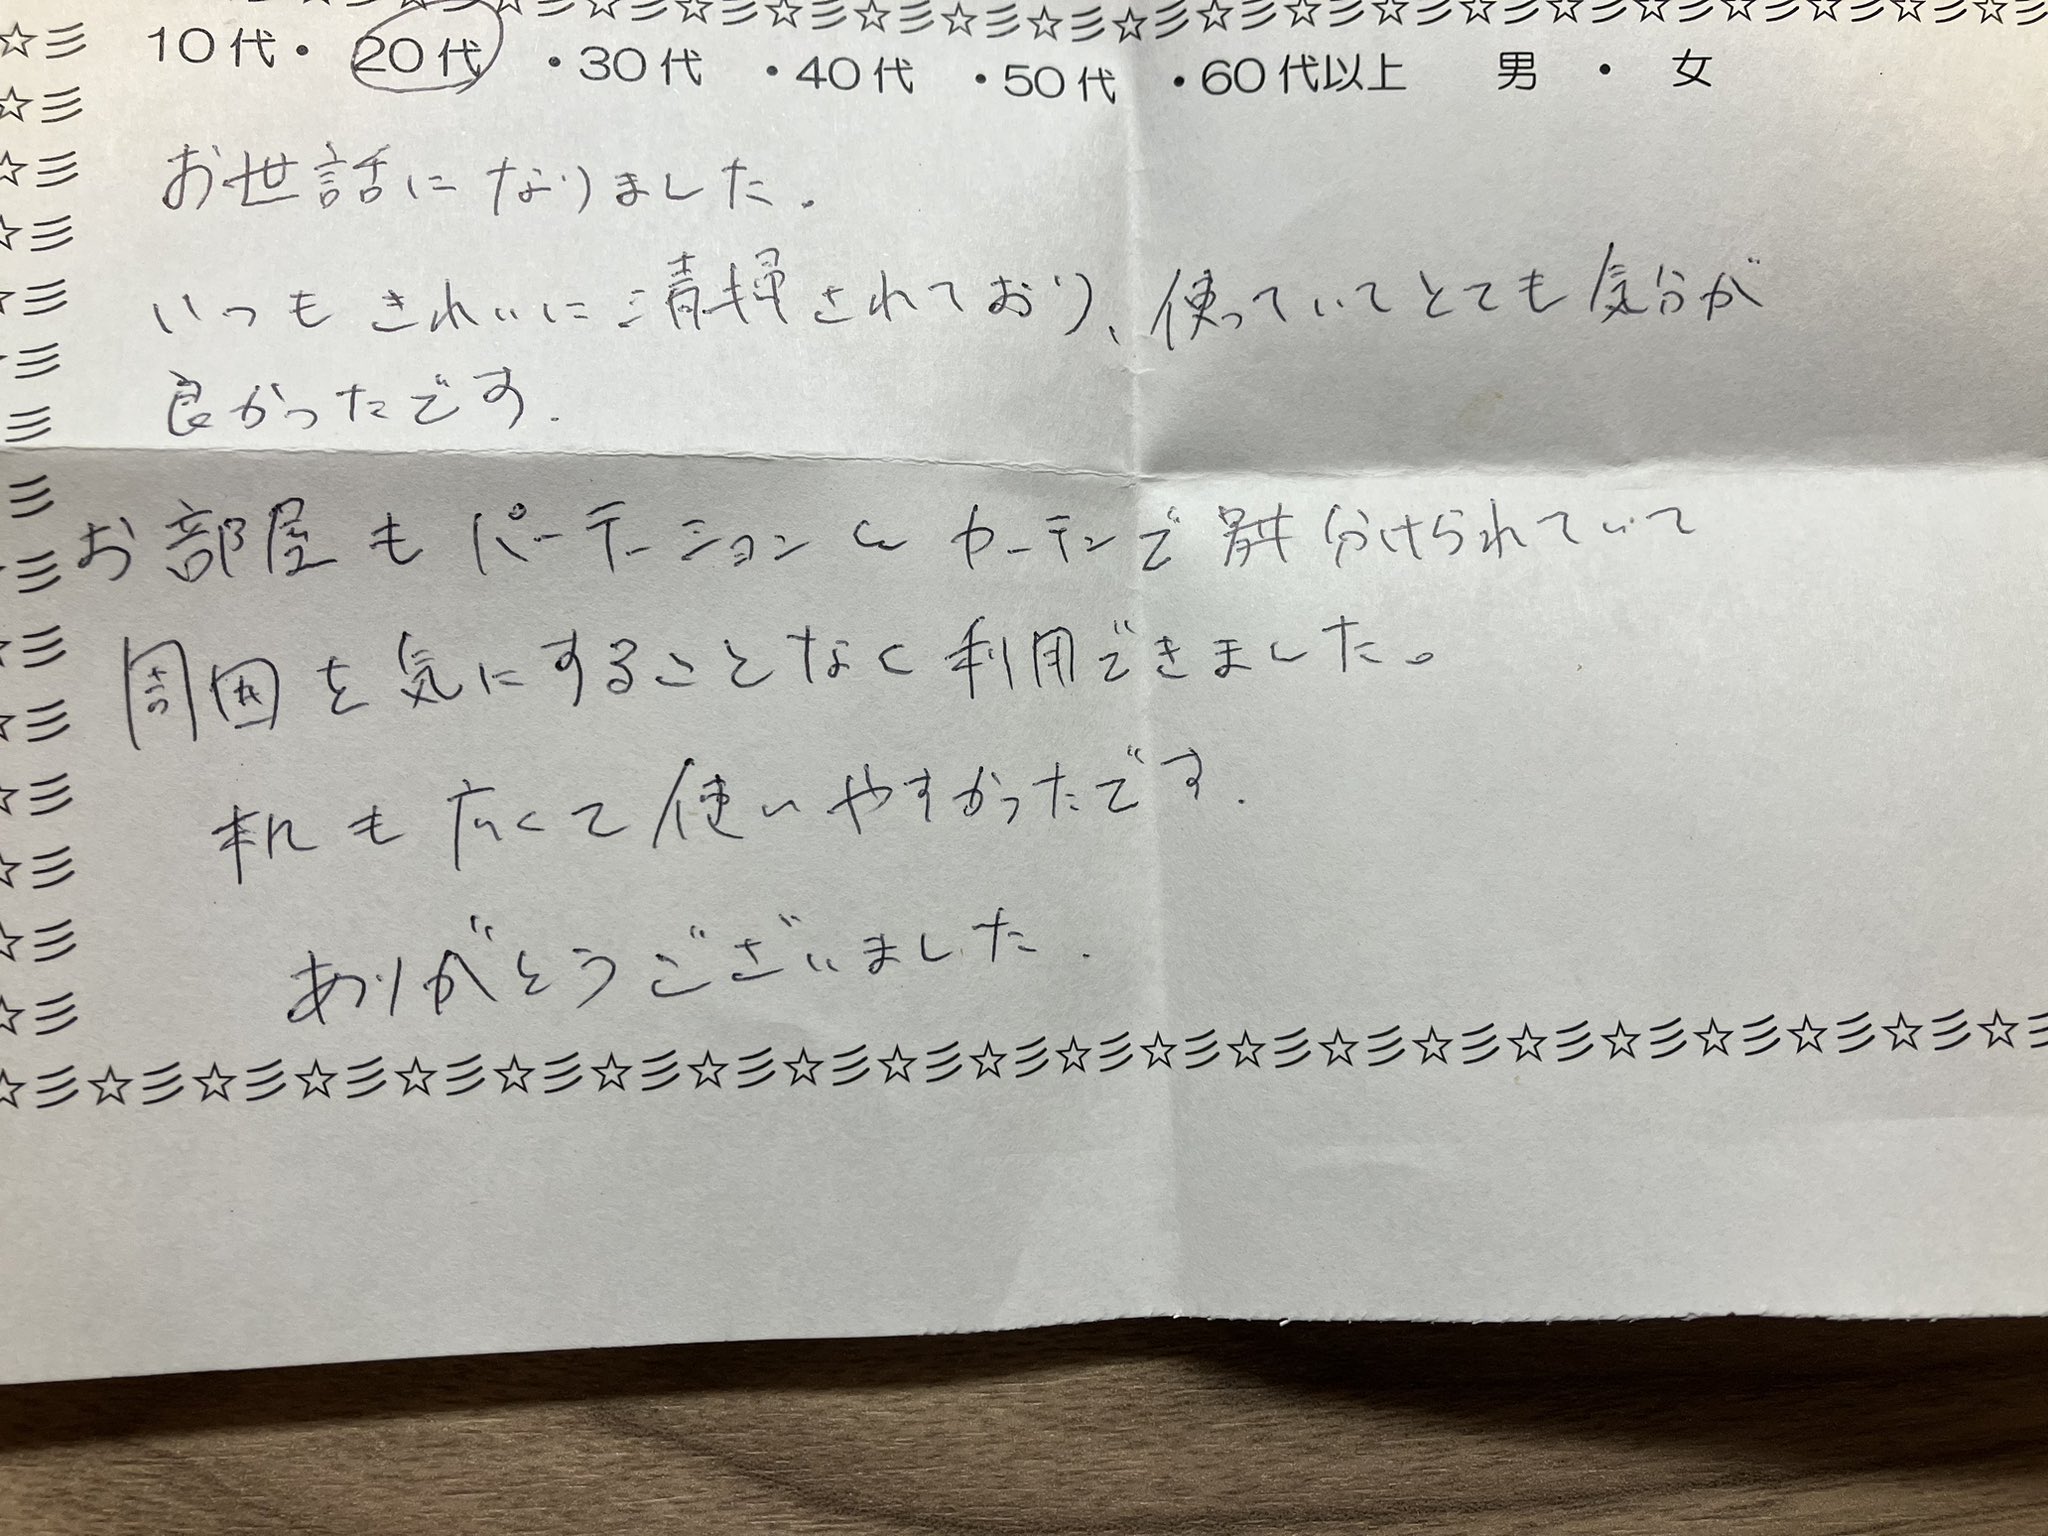 10代・20代・30代・40代・50代・60代以上 男・女
お世話になりました.
いつもきれいに清掃されており、使っていてとても気分が
良かったです.
お部屋もパーテーションとカーテンで 分けられていて
周囲を気にすることなく利用できました。
机も広くて使いやすかったです.
ありがとうございました.